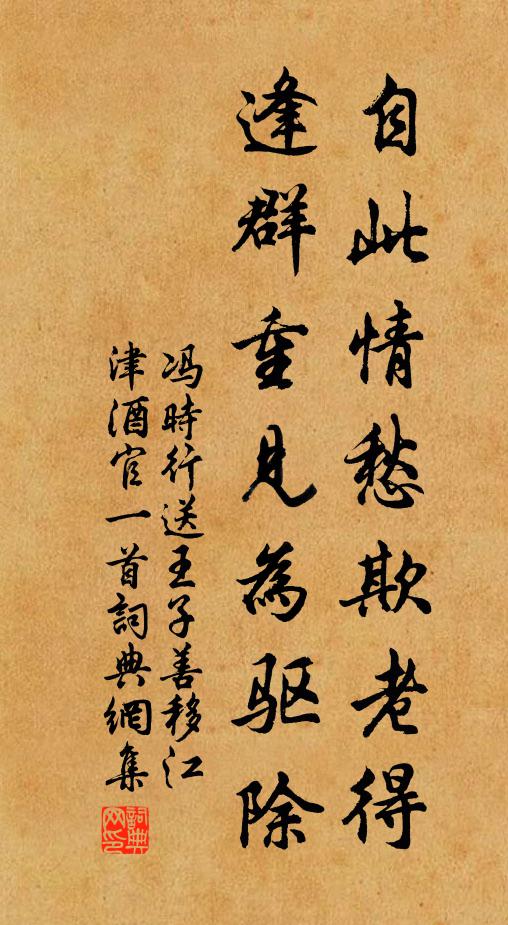 自此情愁欺老得
逢群重见為驱除
冯時行送王子善移江
津酒官一首詞典網集
詞典
网印